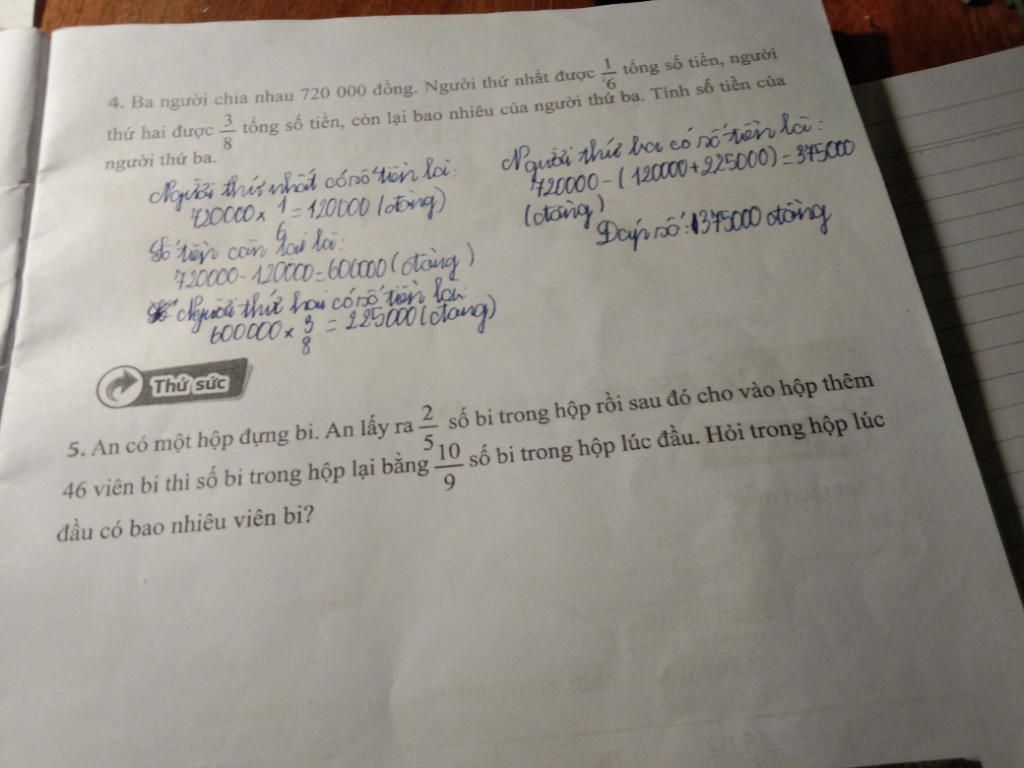 4. Ba người chia nhau 720 000 đồng. Người thứ nhất được 1/6 tổng số tiền, người
thứ hai được 3/8 tổng số tiền, còn lại bao nhiêu của người thứ ba. Tính số tiền của
người thứ ba.
Người thứ nhất có số tiền là:
720000 × 1/6 = 120000 (đồng)
Số tiền còn lại là:
720000 - 120000 = 600000 (đồng)
Người thứ hai có số tiền là:
600000 × 3/8 = 225000 (đồng)
Người thứ ba có số tiền là:
720000 - (120000 + 225000) = 375000
(đồng)
Đáp số: 375000 đồng
Thử sức
5. An có một hộp đựng bi. An lấy ra 2/5 số bi trong hộp rồi sau đó cho vào hộp thêm
46 viên bi thì số bi trong hộp lại bằng 10/9 số bi trong hộp lúc đầu. Hỏi trong hộp lúc
đầu có bao nhiêu viên bi?